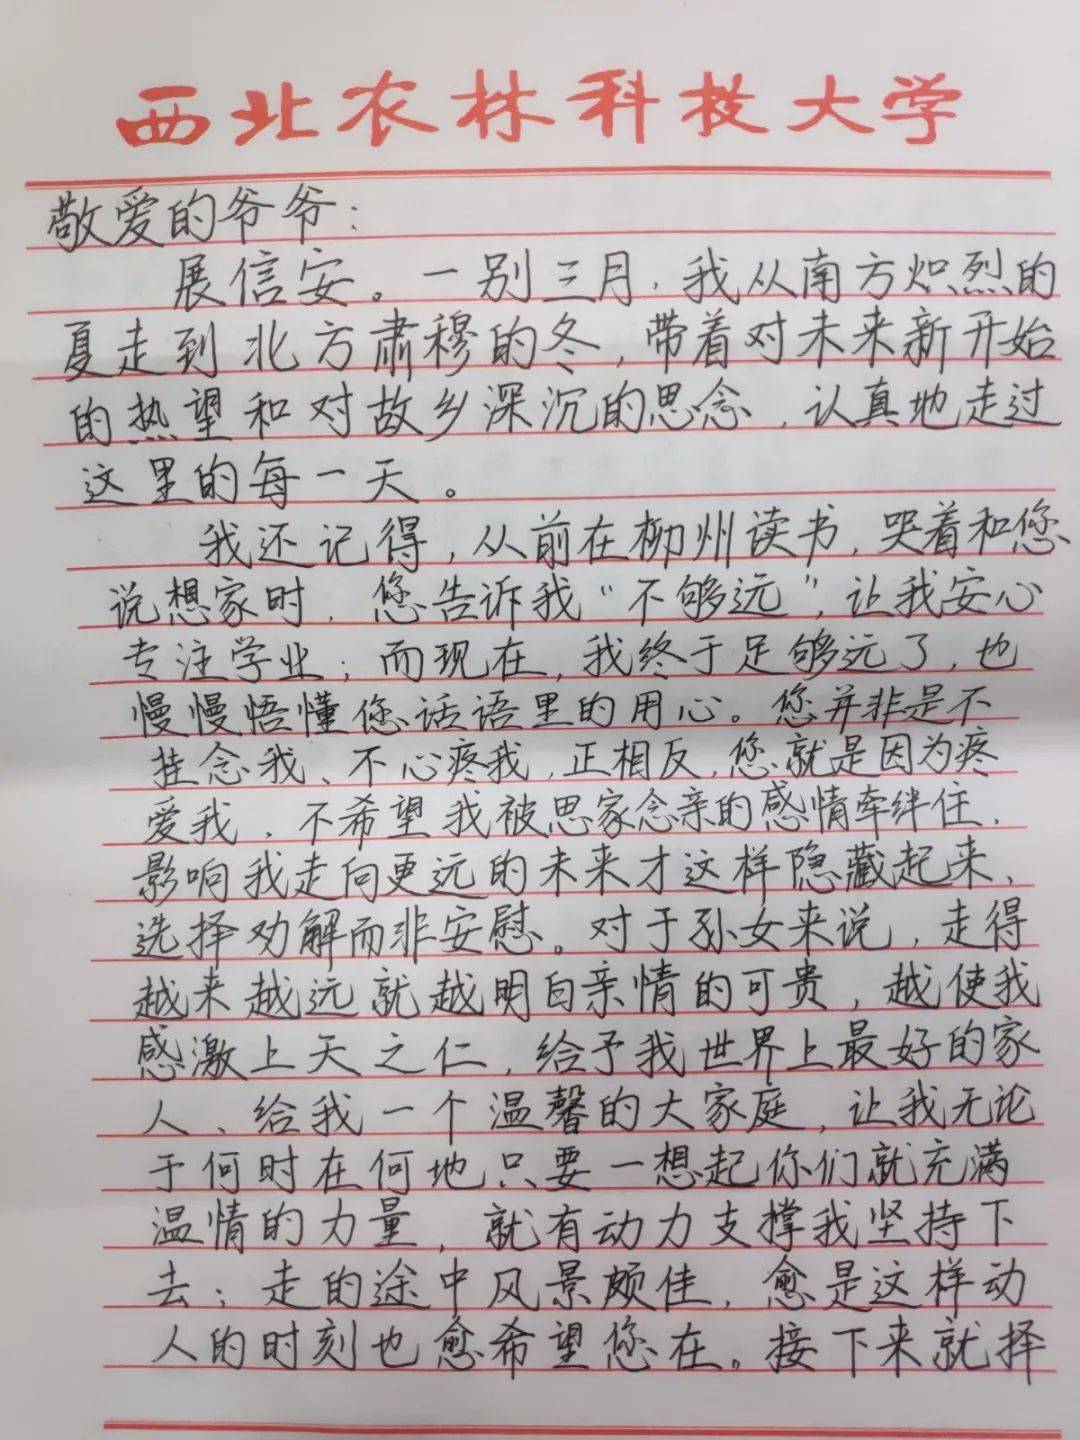 西北农林科技大学
敬爱的爷爷：
展信安。一别三月，我从南方炽烈的
夏走到北方肃穆的冬，带着对未来新开始
的热望和对故乡深沉的思念，认真地走过
这里的每一天。
我还记得，从前在柳州读书，哭着和您
说想家时，您告诉我“不够远”，让我安心
专注学业；而现在，我终于足够远了，也
慢慢悟懂您话语里的用心。您并非是不
挂念我、不心疼我，正相反，您就是因为疼
爱我，不希望我被思家念亲的感情牵绊住，
影响我走向更远的未来才这样隐藏起来，
选择劝解而非安慰。对于孙女来说，走得
越来越远就越明白亲情的可贵，越使我
感激上天之仁，给予我世界上最好的家
人、给我一个温馨的大家庭，让我无论
于何时在何地只要一想起你们就充满
温情的力量，就有动力支撑我坚持下
去；走的途中风景颇佳，愈是这样动
人的时刻也愈希望您在。接下来就择